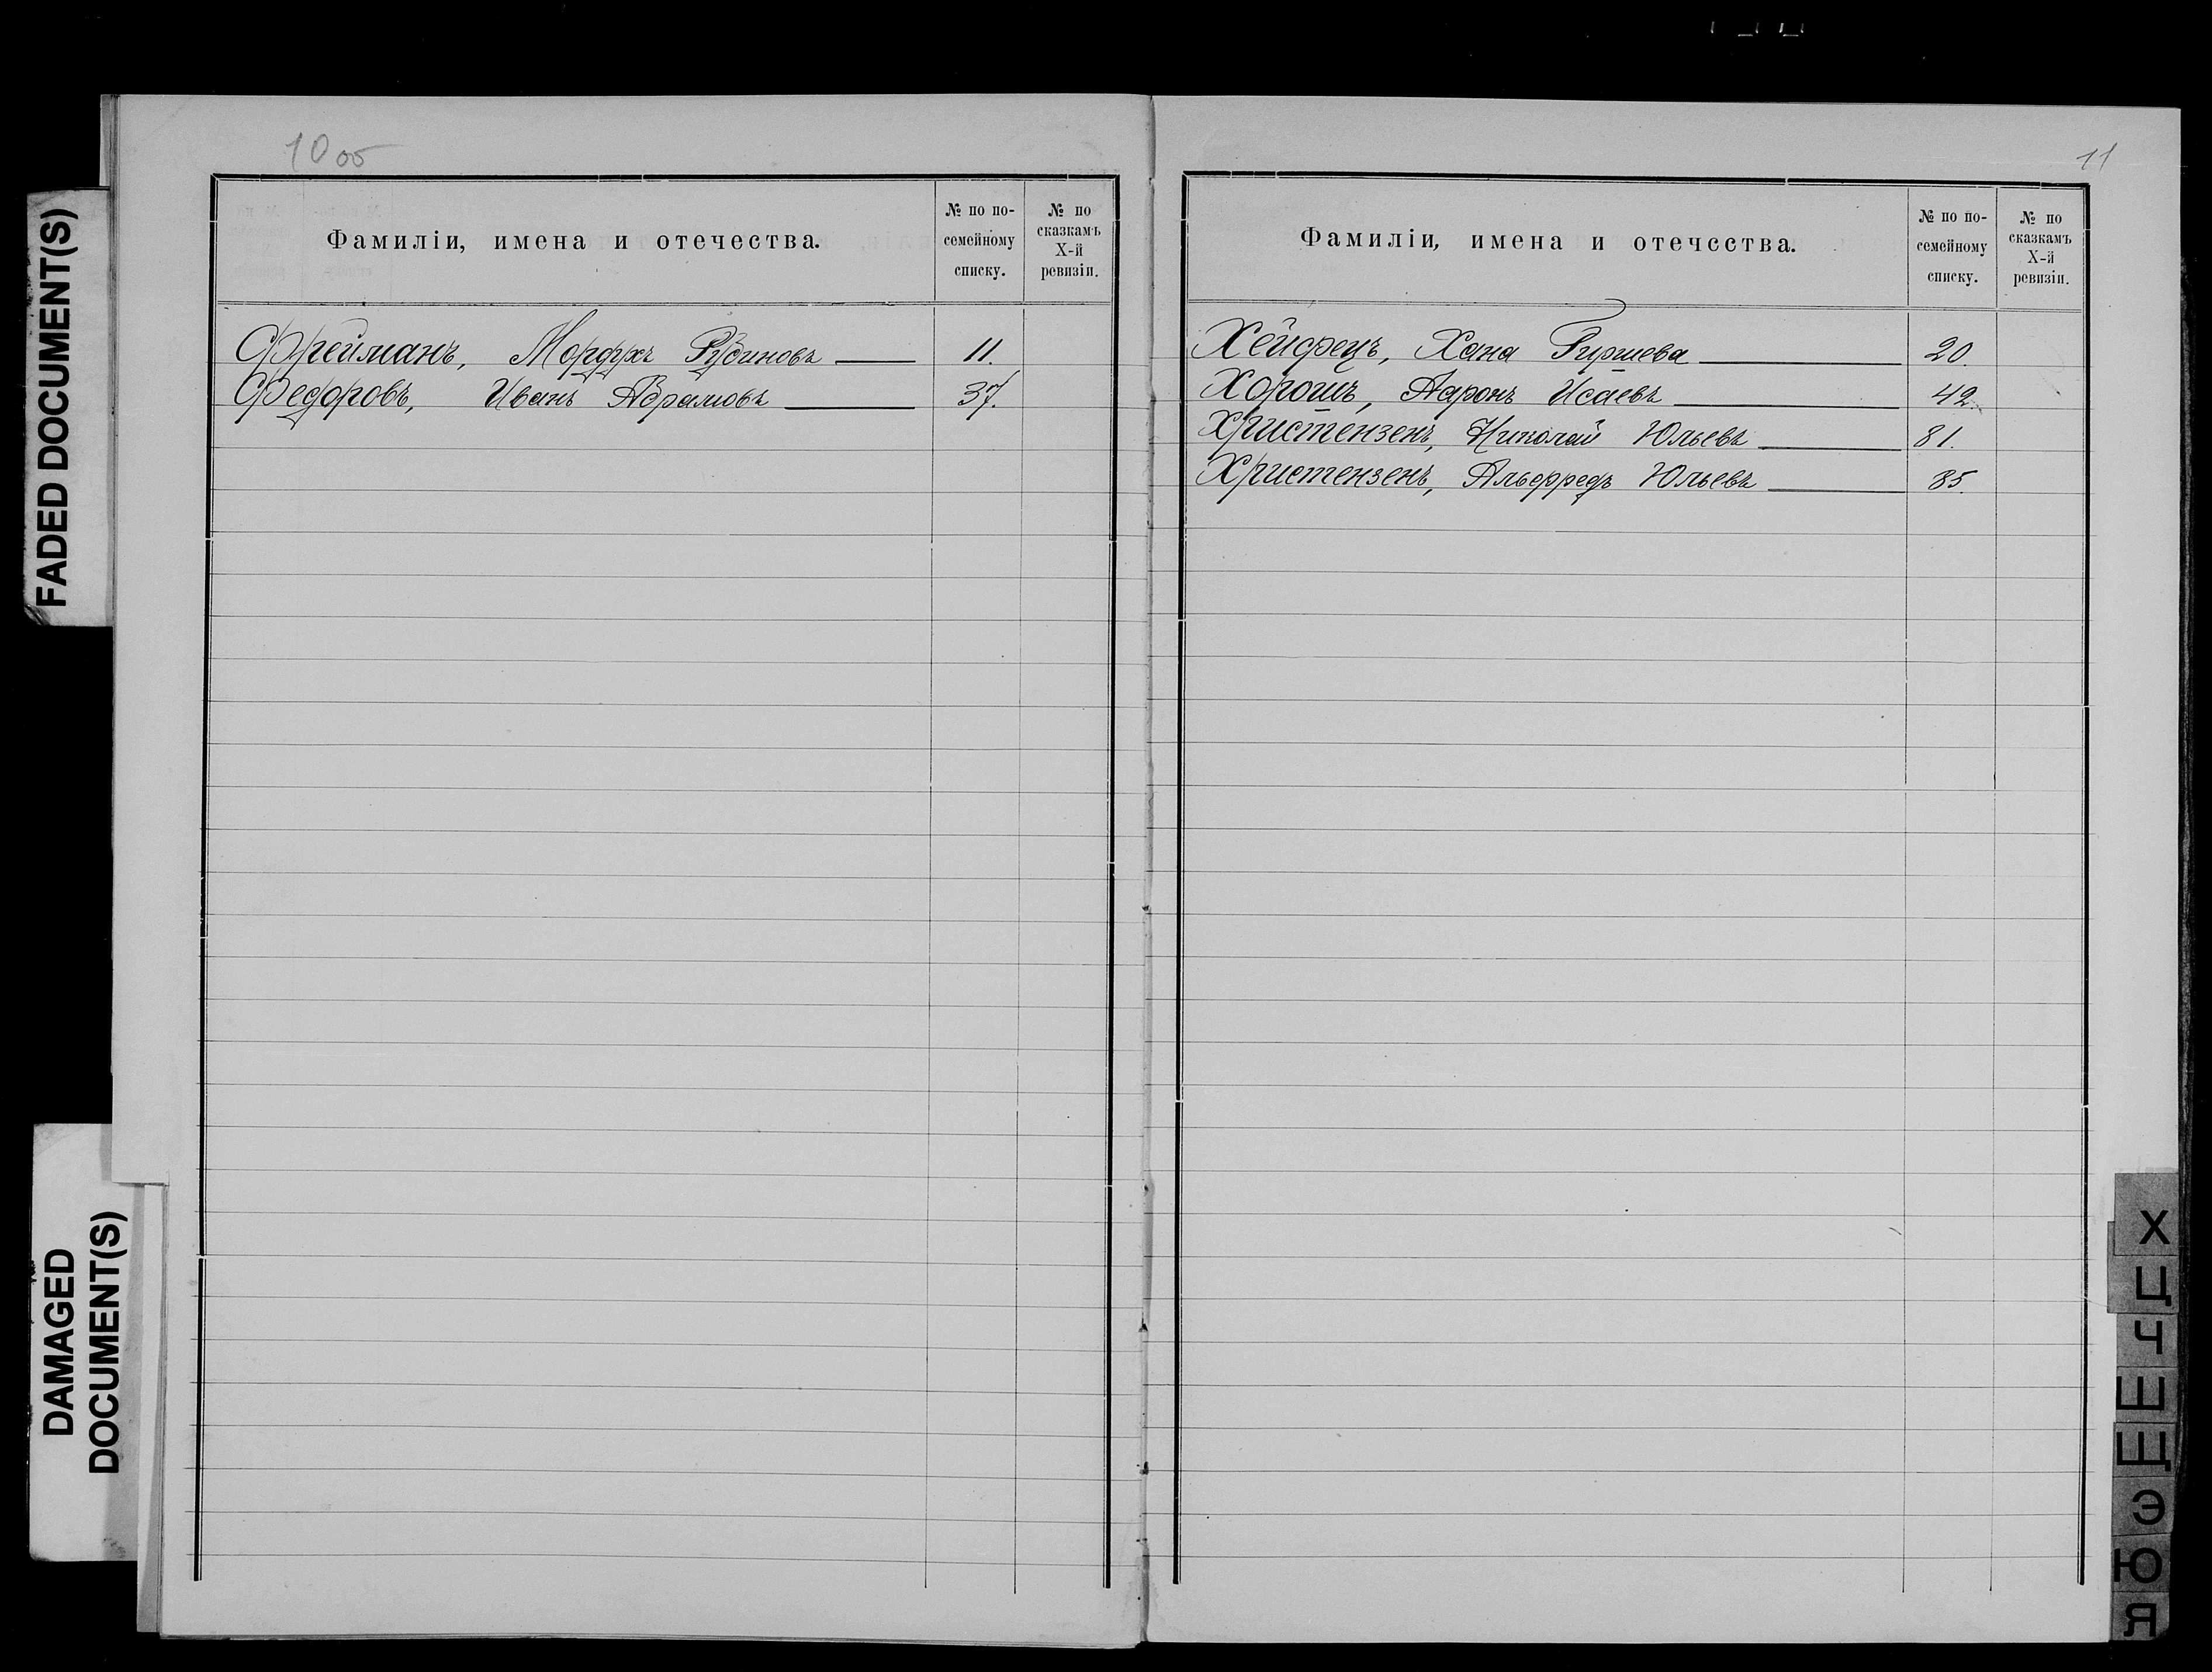 FADED DOCUMENT(S)
DAMAGED
DOCUMENT(S)
10 об
Фамиліи, имена и отечества.
№ по по-
семейному
списку.
№ по
сказкамъ
X-й
ревизіи.
Фрейманъ, Мордухъ Рубиновъ 11.
Федоровъ, Иванъ Абрамовъ 37.
11
Фамиліи, имена и отечества.
№ по по-
семейному
списку.
№ по
сказкамъ
X-й
ревизіи.
Хейфецъ, Хана Гиршева 20.
Хорошъ, Ааронъ Исаевъ 42.
Христензенъ, Николай Юльевъ 81.
Христензенъ, Альфредъ Юльевъ 85.
Х
Ц
Ч
Ш
Щ
Э
Ю
Я